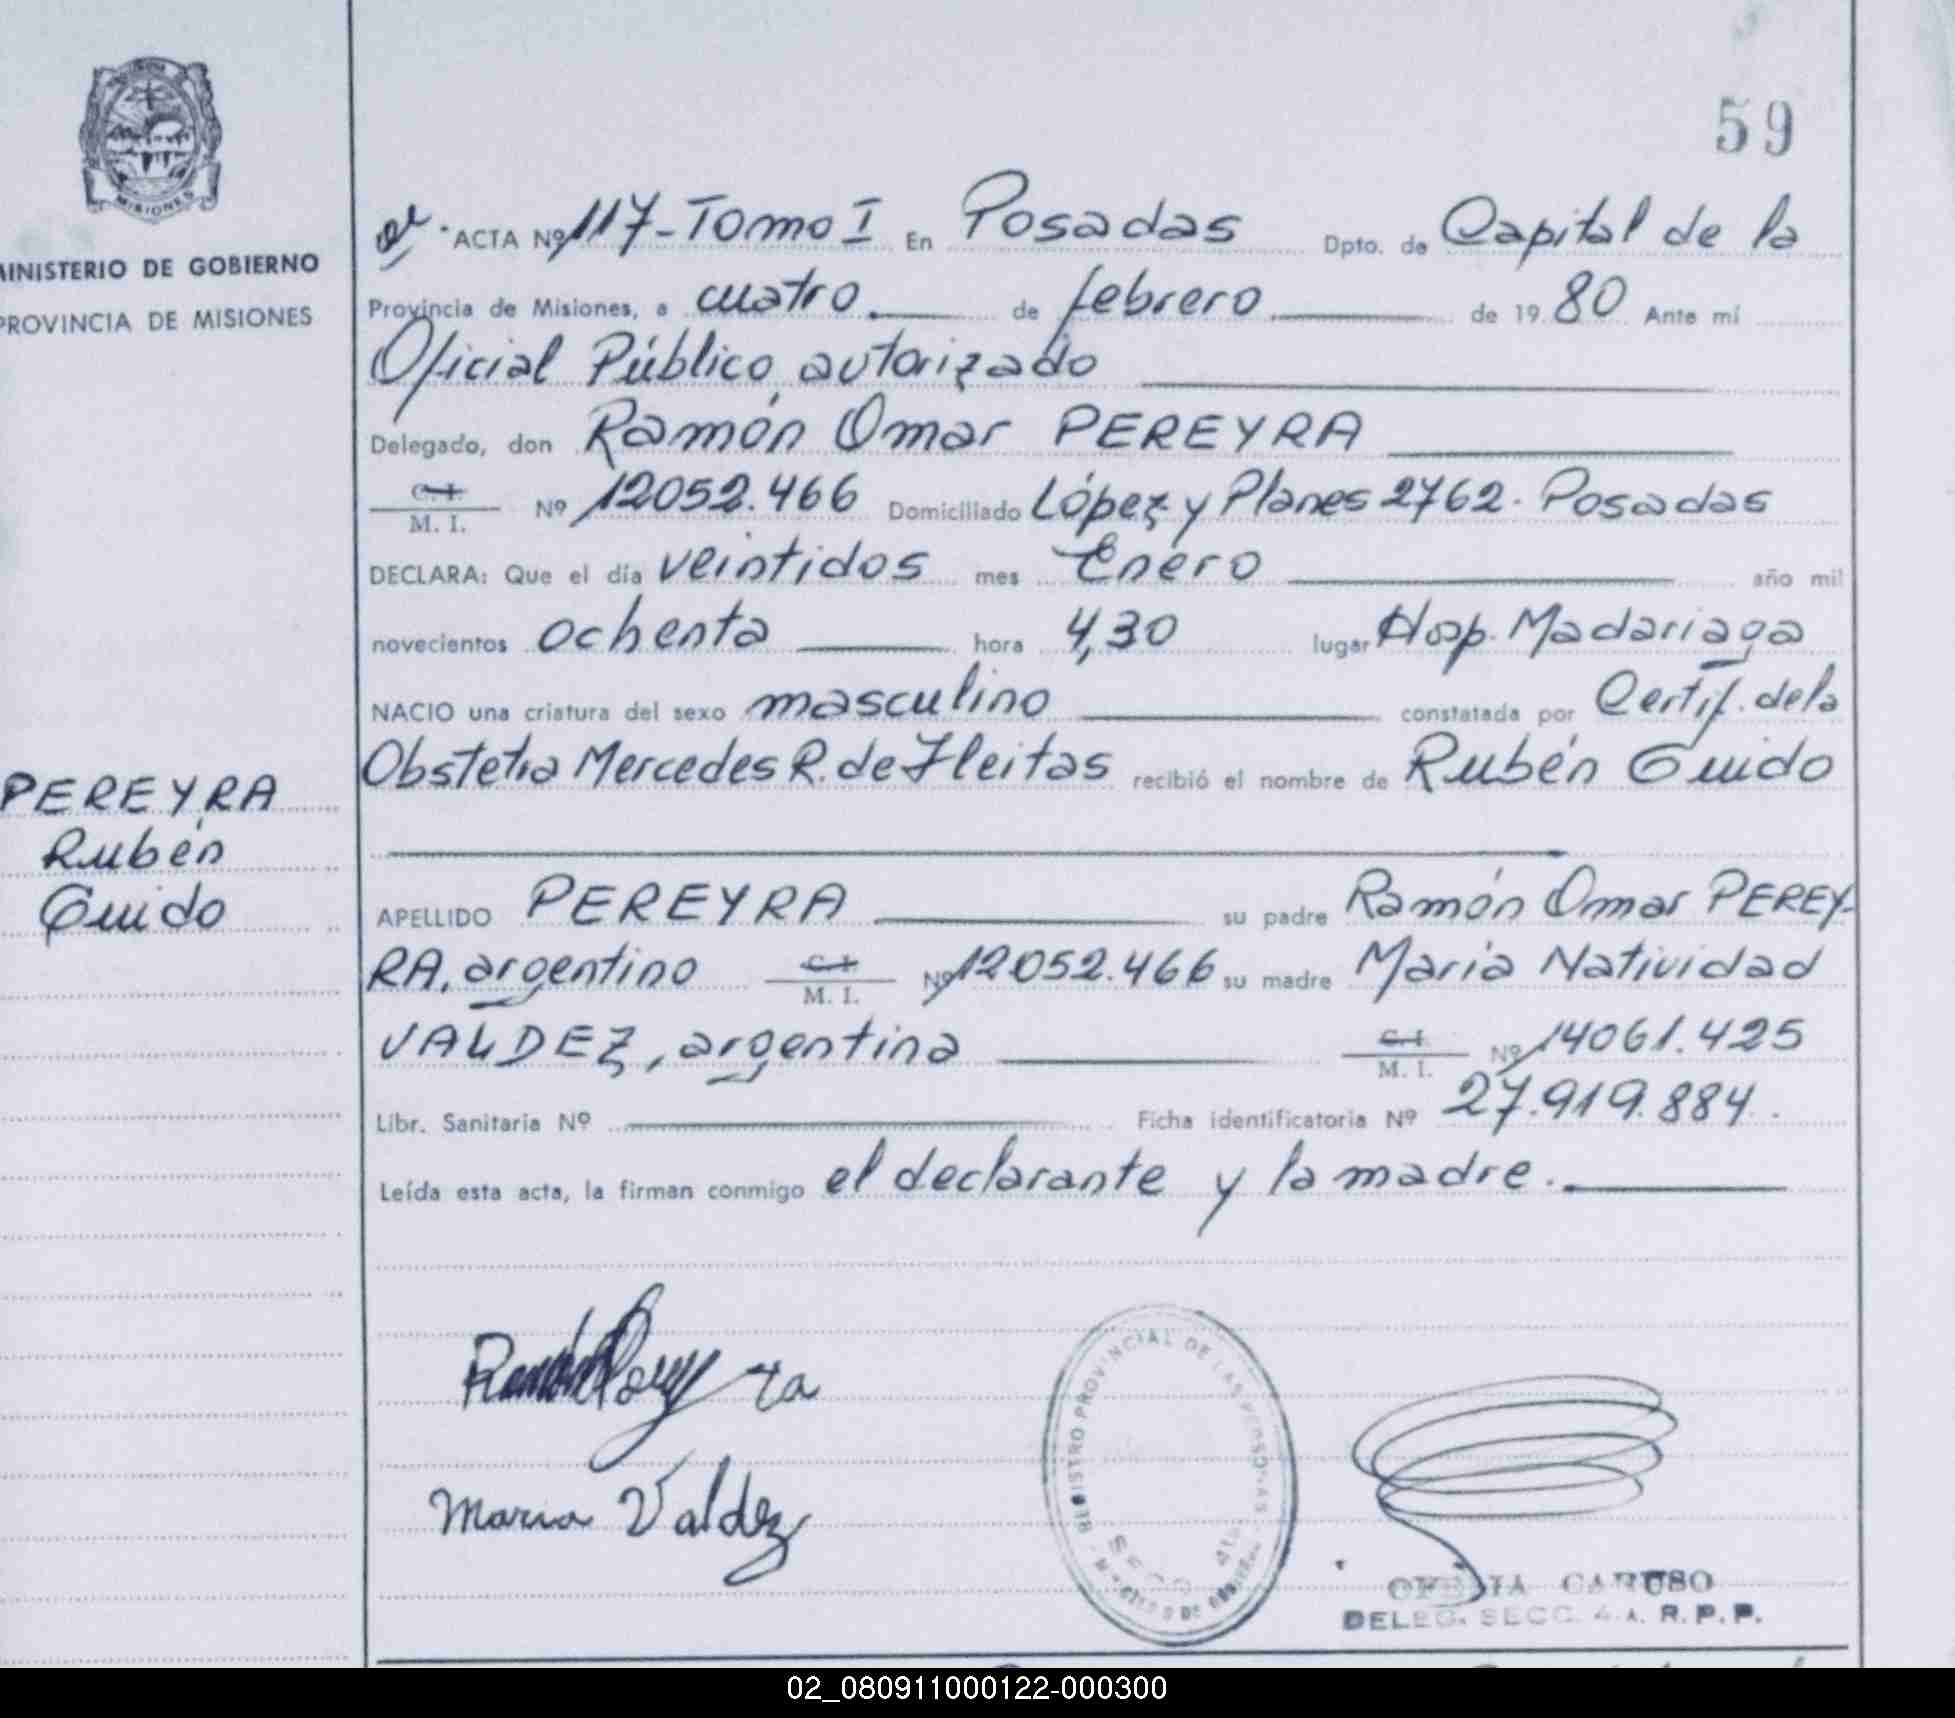 59
MISIONES
MINISTERIO DE GOBIERNO
PROVINCIA DE MISIONES
ACTA Nº 117-Tomo I En Posadas Dpto. de Capital de la
Provincia de Misiones, a cuatro de febrero de 1980 Ante mí
Oficial Público autorizado
Delegado, don Ramón Omar PEREYRA
C.I.
M. I. Nº 12052.466 Domiciliado López y Planes 2762. Posadas
DECLARA: Que el día veintidos mes Enero año mil
novecientos ochenta hora 4,30 lugar Hosp. Madariaga
NACIO una criatura del sexo masculino constatada por Certif. de la
Obstetra Mercedes R. de Fleitas recibió el nombre de Rubén Guido
PEREYRA
Rubén
Guido
APELLIDO PEREYRA su padre Ramón Omar PEREY-
RA, argentino C.I. M. I. Nº 12052.466 su madre María Natividad
VALDEZ, argentina C.I. M. I. Nº 14061.425
Libr. Sanitaria Nº Ficha identificatoria Nº 27.919.884.
Leída esta acta, la firman conmigo el declarante y la madre.
Maria Valdez
REGISTRO PROVINCIAL DE LAS PERSONAS
OFELIA CARUSO
DELEG. SECC. 4 A. R. P. P.
02_080911000122-000300